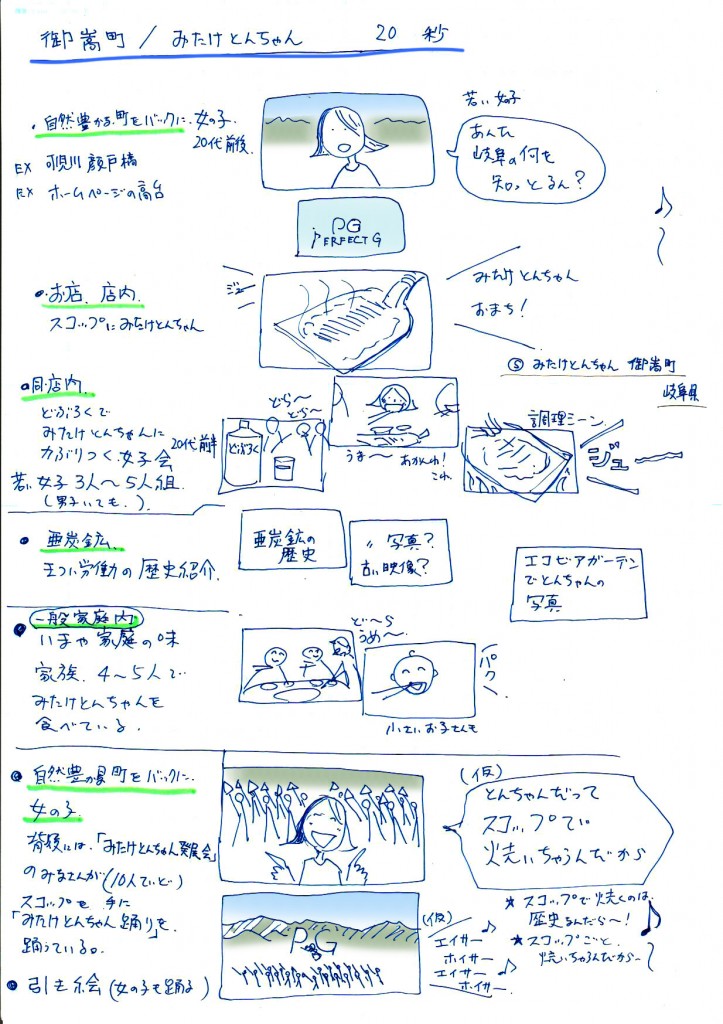 御嵩町 / みたけとんちゃん 20 秒
・自然豊かな町をバックに、女の子
20代前後
EX 可児川 顔戸橋
EX ホームページの高台
若い女の子
あんた
岐阜の何を
知っとるん?
♪
PG
PERFECT G
・お店、店内
スコップにみたけとんちゃん
ジュー
みたけとんちゃん
おまち!
Ⓢ みたけとんちゃん 御嵩町
岐阜県
・同店内
どぶろくで
みたけとんちゃんに
かぶりつく女子会
20代前半
若い女子 3人〜5人組
(男子いても。)
どぶろく
どら〜
どら〜
うま〜
あかんわ!
これ
調理シーン
ジュー
・亜炭鉱、
労働の歴史紹介
亜炭鉱の
歴史
〃 写真?
古い映像?
エコビアガーデン
でとんちゃんの
写真
・一般家庭内
いまや家庭の味
家族、4〜5人で
みたけとんちゃんを
食べている。
ど〜ら
うめ〜
パクッ
小さいお子さんも
・自然豊かな町をバックに、
女の子
背後には、「みたけとんちゃん発展会」
のみなさんが(10人ていど)
スコップを手に
「みたけとんちゃん踊り」を
踊っている。
(仮)
とんちゃんだって
スコップで
焼いちゃうんだから
PG
(仮)
エイサー
ホイサー
エイサー
ホイサー
★スコップで焼くのは、
歴史なんだら〜!
★スコップごと
焼いちゃうんだから〜
・引き絵(女の子も踊る)